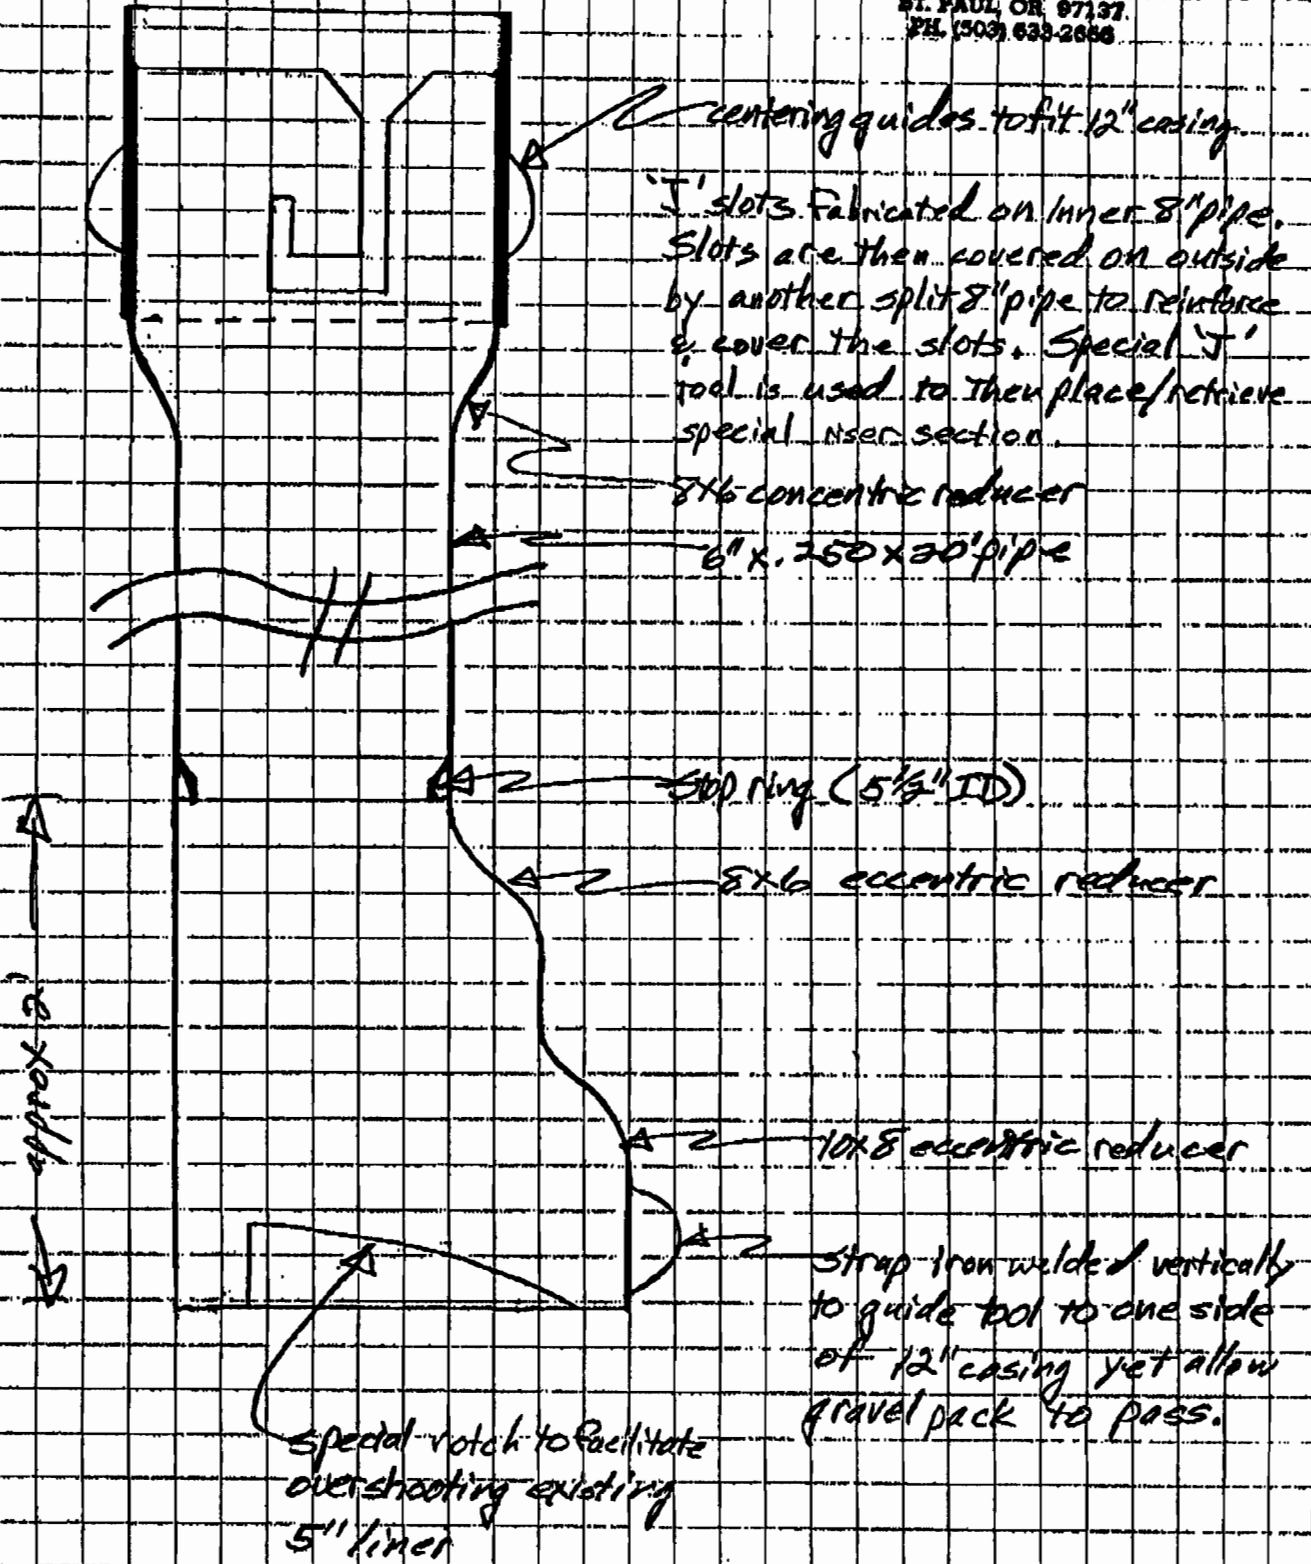 ST. PAUL, OR 97137.
PH. (503) 633-2666
centering guides to fit 12" casing.
'J' slots Fabricated on inner 8" pipe.
Slots are then covered on outside
by another split 8" pipe to reinforce
& cover the slots. Special 'J'
Tool is used to Then place/retrieve
special riser section.
8x6 concentric reducer
6" x .250 x 20' pipe
stop ring (5 1/2" ID)
8x6 eccentric reducer
approx 2'
10x8 eccentric reducer
strap iron welded vertically
to guide tool to one side
of 12" casing yet allow
gravel pack to pass.
special notch to facilitate
overshooting existing
5" liner